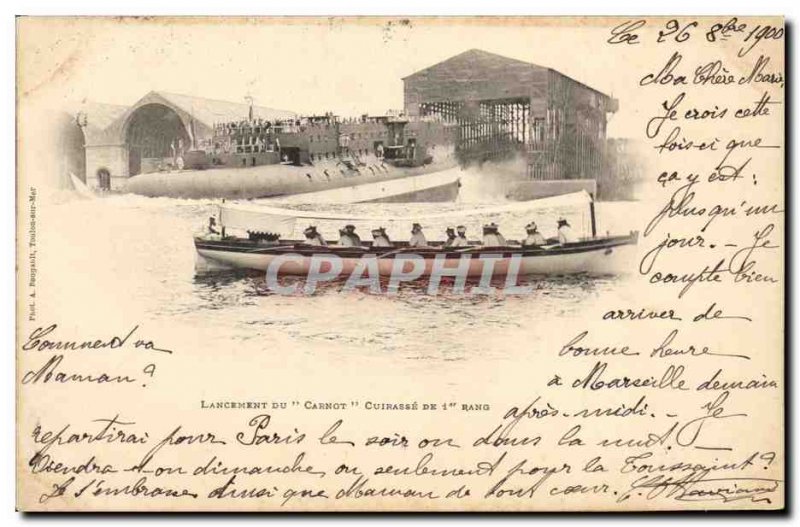 Ce 26 8bre 1900
Ma Chère Marie
Je crois cette
fois-ci que
ça y est:
plus qu'un
jour. - Je
compte bien
arriver de
bonne heure
à Marseille demain
après-midi. - Je
repartirai pour Paris le soir ou dans la nuit. -
Viendra-t-on dimanche ou seulement pour la Toussaint?
Je t'embrasse ainsi que Maman de tout cœur.
Comment va
Maman?
LANCEMENT DU "CARNOT" CUIRASSÉ DE 1er RANG
Phot. A. Bougault, Toulon-sur-Mer
CPARAMA